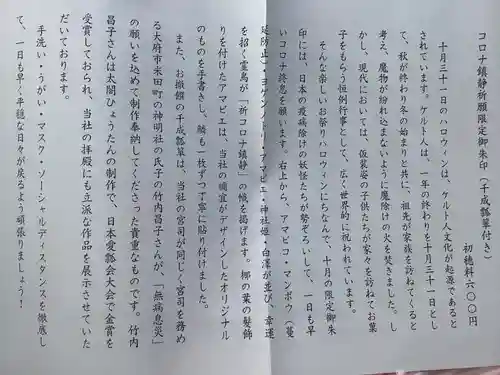 コロナ鎮静祈願限定御朱印(千成瓢箪付き)
初穂料六〇〇円
十月三十一日のハロウィンは、ケルト人文化が起源であると
されています。ケルト人は、一年の終わりを十月三十一日とし
て、秋が終わり冬の始まりと共に、祖先が家族を訪ねてくると
考え、魔物が紛れ込まないように魔除けの火を焚きました。し
かし、現代においては、仮装姿の子供たちが家々を訪ねてお菓
子をもらう恒例行事として、広く世界的に祝われています。
そんな楽しいお祭りハロウィンにちなんで、十月の限定御朱
印には、日本の疫病除けの妖怪たちが勢ぞろいして、一日も早
いコロナ終息を願います。右上から、アマビコ・マンボウ(蔓
延防止)・ヨゲンノトリ・アマビエ・神社姫・白澤が並び、幸運
を招く霊鳥が「祈コロナ鎮静」の幟を掲げます。梛の葉の髪飾
りを付けたアマビエは、当社の禰宜がデザインしたオリジナル
のものを手書きし、鱗も一枚ずつ丁寧に貼り付けました。
また、お撒餌の千成瓢箪は、当社の宮司が同じく宮司を務め
る大府市米田町の神明社の氏子の竹内昌子さんが、「無病息災」
の願いを込めて制作奉納してくださった貴重なものです。竹内
昌子さんは太閤ひょうたんの制作で、日本愛瓢会大会で金賞を
受賞しておられ、当社の拝殿にも立派な作品を展示させていた
だいております。
手洗い・うがい・マスク・ソーシャルディスタンスを徹底し
て、一日も早く平穏な日々が戻るよう頑張りましょう!